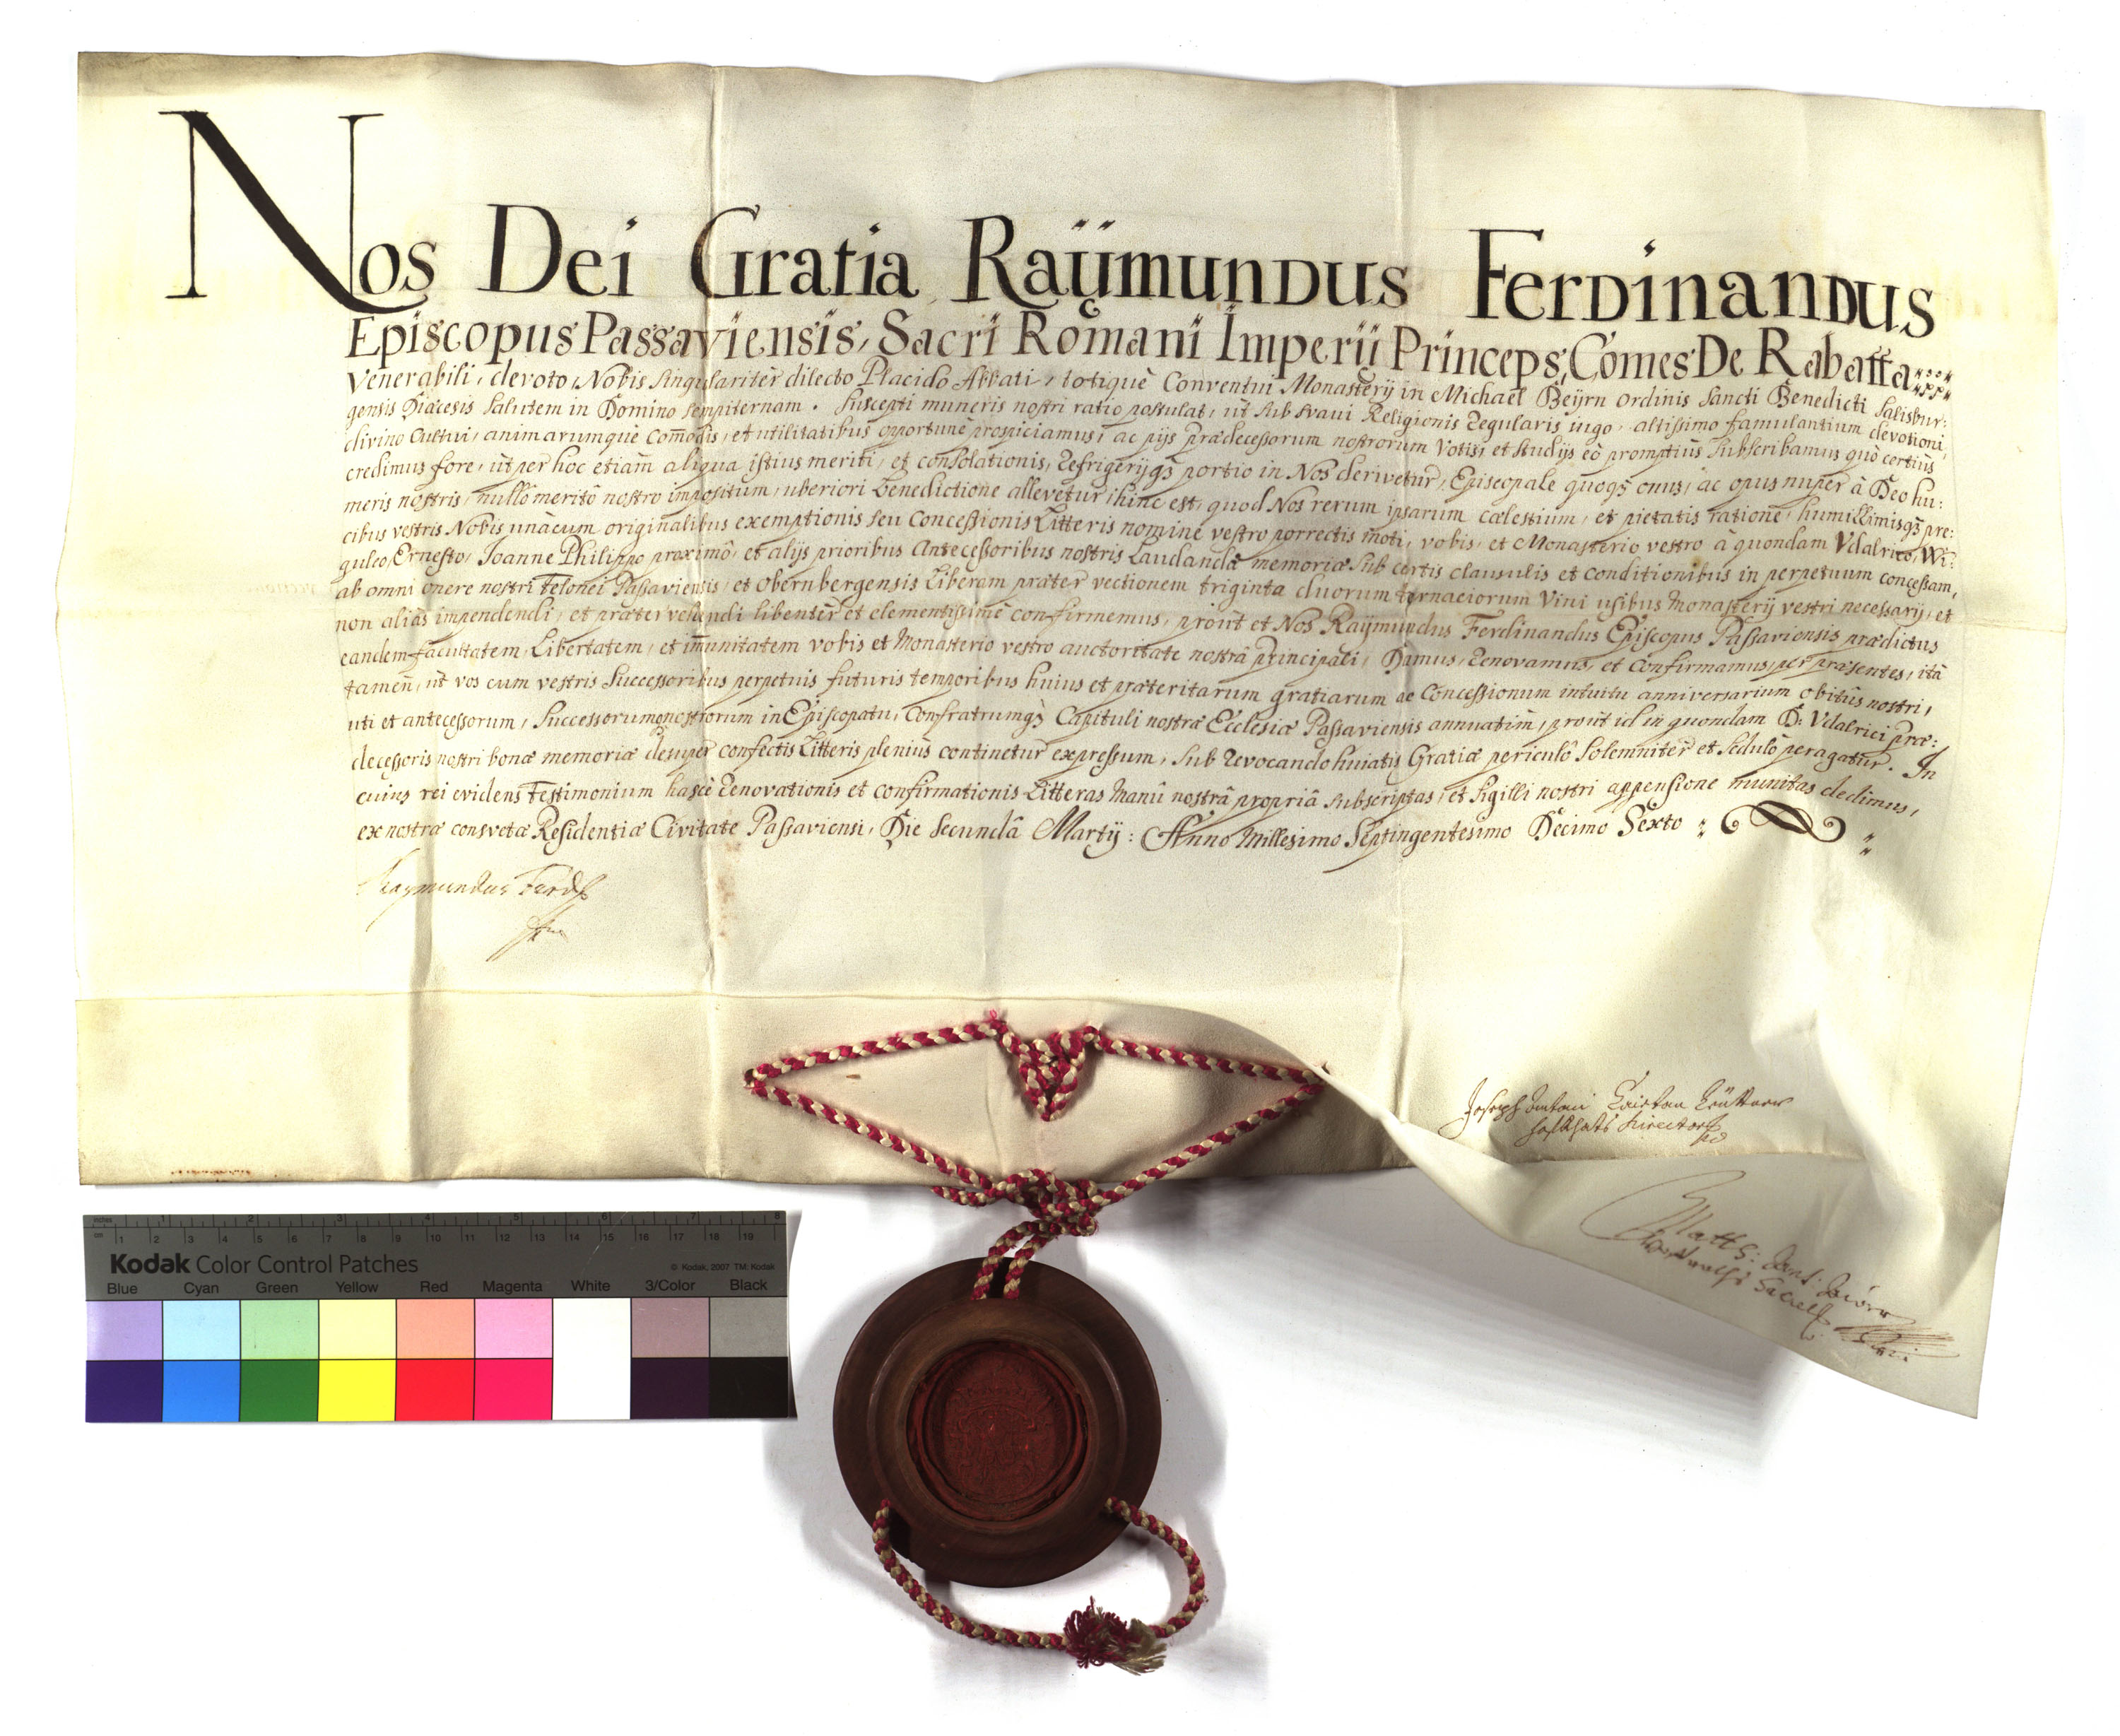 Nos Dei Gratia Raÿmundus Ferdinandus
Episcopus Passaviensis, Sacri Romani Imperÿ Princeps, Comes De Rabatta
Venerabili, devoto, Nobis singularitèr dilecto Placido Abbati, totiquè Conventui Monasterÿ in Michaël Beÿrn ordinis Sancti Benedicti Salisbur:
gensis Diæcesis Salutem in Domino sempiternam. Suscepti muneris nostri ratio postulat, ut sub svavi Religionis Regularis iugo, altissimo famulantium devotioni,
divino Cultui, animarumquè Com̃odis, et utilitatibus oportunè prospiciamus, ac pÿs prædecessorum nostrorum Votis, et studÿs eò promptiùs subscribamus quò certiùs
credimus fore, ùt per hoc etiam̃ aliqua istius meriti, et consolationis, Refrigerÿq3 portio in Nos derivetur, Episcopale quoq3 onus, ac opus nuper à Deo hu:
meris nostris, nullô meritô nostro impositum, uberiori benedictione allevetur, hinc est, quod Nos rerum ipsarum cœlestium, et pietatis ratione, humillimisq3 pre:
cibus vestris Nobis unàcum originalibus exemptionis seu Concessionis Litteris nomine vestro porrectis moti, vobis, et Monasterio vestro à quondam Vdalrico, Wi:
guleo, Ernesto, Joanne Philippo proximô, et alÿs prioribus Antecessoribus nostris Laudandæ memoriæ sub certis clausulis et conditionibus in perpetuum concessam,
ab omni onere nostri Telonei Passaviensis, et Obernbergensis Liberam præter vectionem triginta duorum ternaciorum Vini usibus Monasterÿ vestri necessarÿ, et
non aliàs impendendi, et præter vehendi libentèr et clementissimè confirmemus, proùt et Nos Raÿmundus Ferdinandus Episcopus Passaviensis prædictus
eandem facultatem, Libertatem, et im̃unitatem vobis et Monasterio vestro auctoritate nostrâ principali, Damus, Renovamus, et Confirmamus, per præsentes, ità
tamen̄, ùt vos cum vestris Successoribus perpetuis futuris temporibus huius et præteritarum gratiarum ac Concessionum intuitu anniversarium obitûs nostri,
uti et antecessorum, Successorumq3 nostrorum in Episcopatu, Confratrumq3 Capituli nostræ Ecclesiæ Passaviensis annuatim̃, proùt id in quondam D: Vdalrici præ:
decessoris nostri bonæ memoriæ desuper confectis Litteris pleniùs continetur expressum, sub Revocandæ huiatis Gratiæ periculô Solemnitèr et sedulò peragatur. In
cuius rei evidens Testimonium hascè Renovationis et confirmationis Litteras Manû nostrâ propriâ subscriptas, et sigilli nostri appensione munitas dedimus,
ex nostræ consvetæ Residentiæ Civitate Passaviensi, Die secundâ Martÿ: Anno Millesimo Septingentesimo Decimo Sexto
Raymundus Ferd
Joseph Antoni
Hofraths Director
Matth: Ant:
Kodak Color Control Patches
© Kodak, 2007 TM: Kodak
inches 1 2 3 4 5 6 7 8
cm 1 2 3 4 5 6 7 8 9 10 11 12 13 14 15 16 17 18 19
Blue Cyan Green Yellow Red Magenta White 3/Color Black